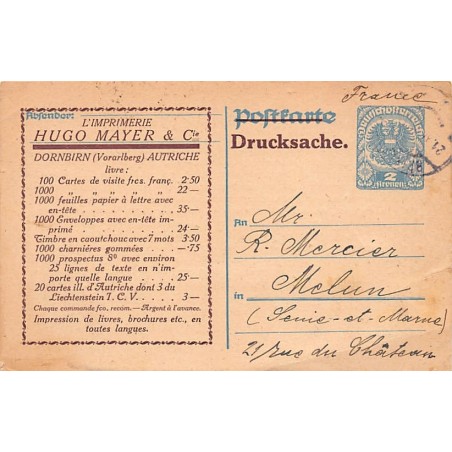 Absender:
L'IMPRIMERIE
HUGO MAYER & Cie
DORNBIRN (Vorarlberg) AUTRICHE
livre:
100 Cartes de visite frcs. franç. 2·50
1000 " " " " 22—
1000 feuilles papier à lettre avec
en-tête . . . . . . . . 35·—
1000 Enveloppes avec en-tête im-
primé . . . . . . . . 24·—
Timbre en caoutchouc avec 7 mots 3.50
1000 charnières gommées . . —·75
1000 prospectus 8º avec environ
25 lignes de texte en n'im-
porte quelle langue . . . 25—
20 cartes ill. d'Autriche dont 3 du
Liechtenstein T. C. V. . . . 3—
Chaque commande fco. recom. — Argent à l'avance.
Impression de livres, brochures etc., en
toutes langues.
France
Postkarte
Drucksache.
Deutschösterreich
2
Kronen
An
Mr.
R. Mercier
Melun
in
(Seine-et-Marne)
21 rue du Château